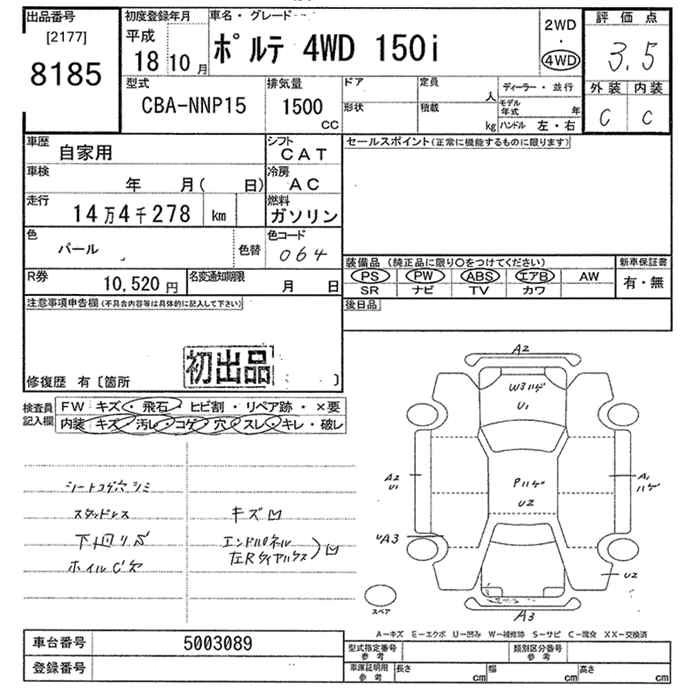 出品番号
[2177]
8185
初度登録年月
平成
18 10 月
車名・グレード
ポルテ 4WD 150i
2WD
・
4WD
評価点
3.5
外装 内装
C C
型式
CBA-NNP15
排気量
1500
CC
ドア
形状
定員
人
積載
kg
ディーラー・並行
モデル年式 年
ハンドル 左・右
車歴
自家用
シフト
CAT
車検
年 月( 日)
冷房
AC
走行
14万4千278 km
燃料
ガソリン
色
パール
色替
色コード
064
R券
10,520 円
名変通知期限
月 日
セールスポイント(正常に機能するものに限ります)
装備品(純正品に限り○をつけてください)
新車保証書
PS PW ABS エアB AW
有・無
SR ナビ TV カワ
後日品
注意事項申告欄(不具合内容等は具体的に記入して下さい)
初出品
修復歴 有〔箇所 〕
検査員記入欄
FW キズ・飛石・ヒビ割・リペア跡・×要
内装・キズ・汚レ・コゲ・穴・スレ・キレ・破レ
シートコゲ穴シミ
スタッドレス
下回リサビ
キズ凹
エンドパネル
A2
W3ハゲ
U1
A2
U1
Pハゲ
U2
A1
ハゲ
UA3
U2
A3
スペア
A－キズ E－エクボ U－凹み W－補修跡 S－サビ C－腐食 XX－交換済
車台番号
5003089
登録番号
型式指定番号
参考
類別区分番号
参考
車庫証明用
参考
長さ cm 幅 cm 高さ cm